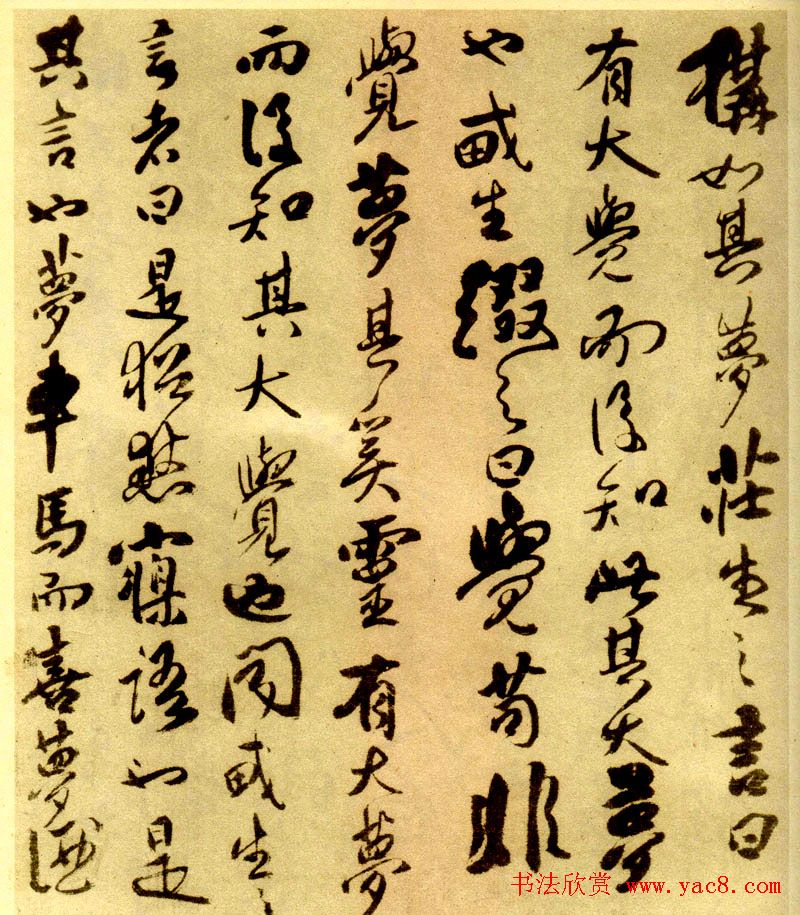 構如其夢莊生之言曰
有大覺而後知此其大夢
也生綴之曰覺苟非
覺夢其奚靈有大夢
而後知其大覺也聞生之
言者曰是猶語也是
其言也夢車馬而喜夢酒
书法欣赏 www.yac8.com